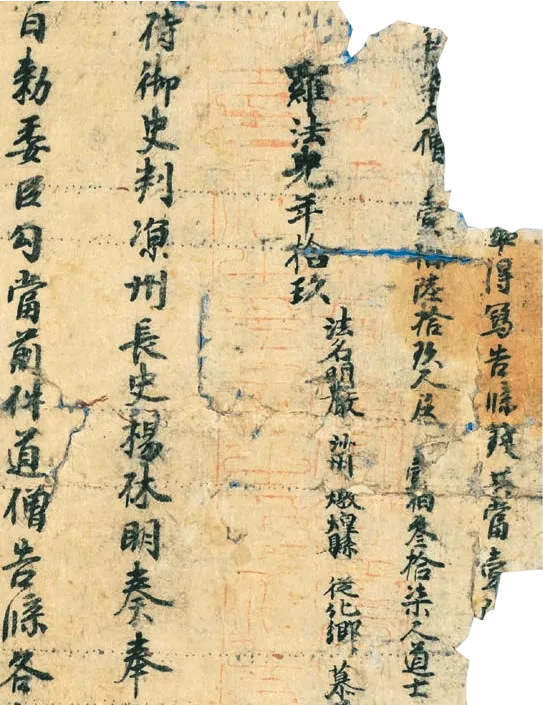 得寫告牒錢共當壹
人僧 壹伯陸拾玖人尼 壹伯叁拾柒人道士
羅法光年拾玖
法名明嚴 沙州 燉煌縣 從化鄉 慕
侍御史判涼州長史楊休明奏奉
日勅委臣勾當前件道僧告牒各